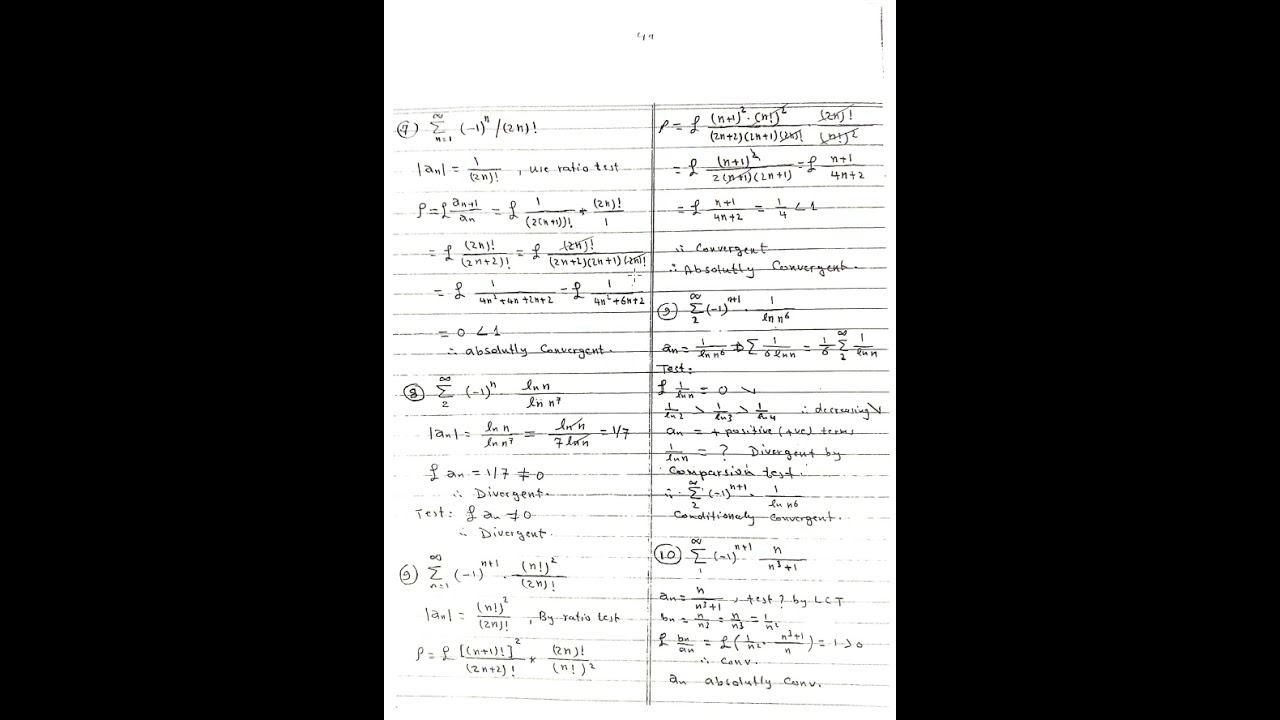 49
⑦ ∑_{n=1}^{∞} (-1)^n / (2n)!
|an| = 1/(2n)! , use ratio test
ρ = £ a_{n+1}/a_n = £ 1/(2(n+1))! * (2n)!/1
= £ (2n)!/(2n+2)! = £ (2n)!/((2n+2)(2n+1)(2n)!)
= £ 1/(4n²+4n+2n+2) = £ 1/(4n²+6n+2)
= 0 < 1
∴ absolutly Convergent.
⑧ ∑_{2}^{∞} (-1)^n ln n / ln n⁷
|an| = ln n / ln n⁷ = ln n / 7 ln n = 1/7
£ an = 1/7 ≠ 0
∴ Divergent.
Test: £ an ≠ 0
∴ Divergent.
⑨ ∑_{n=1}^{∞} (-1)^{n+1} · (n!)²/(2n)!
|an| = (n!)²/(2n)! , By ratio test
ρ = £ [(n+1)!]²/(2n+2)! * (2n)!/(n!)²
ρ = £ (n+1)²·(n!)²/((2n+2)(2n+1)(2n)!) · (2n)!/(n!)²
= £ (n+1)²/(2(n+1)(2n+1)) = £ (n+1)/(4n+2)
= £ (n+1)/(4n+2) = 1/4 < 1
∴ Convergent
∴ Absolutly Convergent.
⑨ ∑_{2}^{∞} (-1)^{n+1} · 1/ln n⁶
an = 1/ln n⁶ ⇒ ∑ 1/(6 ln n) = 1/6 ∑_{2}^{∞} 1/ln n
Test:
£ 1/ln n = 0 ✓
1/ln2 > 1/ln3 > 1/ln4 ∴ decreasing ✓
an = + positive (+ve) terms
1/ln n = ? Divergent by
Comparsion test.
∴ ∑_{2}^{∞} (-1)^{n+1} · 1/ln n⁶
Conditionaly Convergent.
⑩ ∑_{1}^{∞} (-1)^{n+1} n/(n³+1)
an = n/(n³+1) , test? by LCT
bn = n/n³ = n/n³ = 1/n²
£ bn/an = £ (1/n² · (n³+1)/n) = 1 > 0
∴ conv.
an absolutly conv.